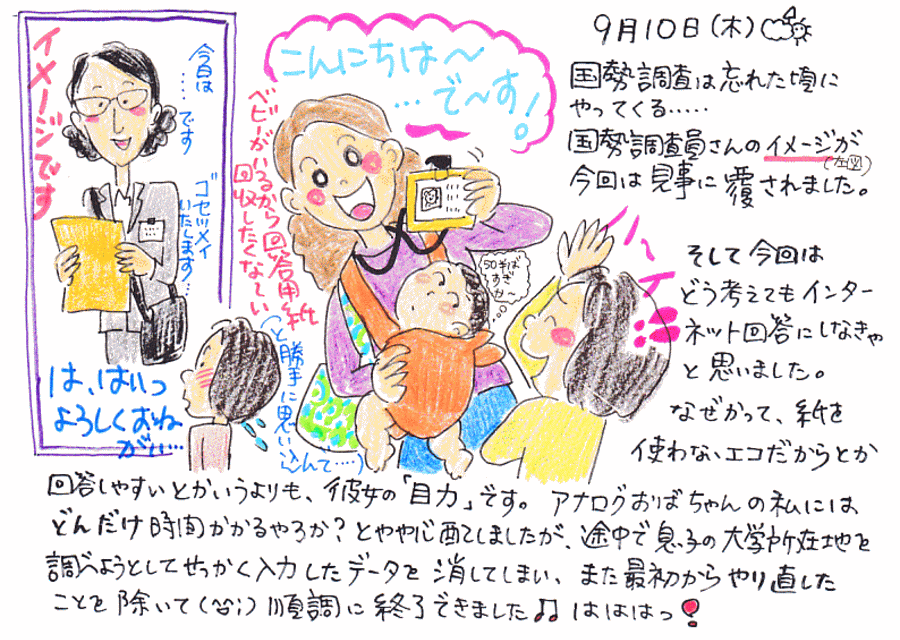 9月10日(木)
国勢調査は忘れた頃に
やってくる……
国勢調査員さんのイメージが
(左図)
今回は見事に覆されました。
そして今回は
どう考えてもインター
ネット回答にしなきゃ
と思いました。
なぜかって、紙を
使わないエコだからとか
回答しやすいとかいうよりも、彼女の「目力」です。アナログおばちゃんの私には
どんだけ時間かかるやろか?とやや心配しましたが、途中で息子の大学所在地を
調べようとしてせっかく入力したデータを消してしまい、また最初からやり直した
ことを除いて(^^;)順調に終了できました♫ はははっ!
イメージです
今日は
…です
ゴセツメイ
いたします…
は、はいっ
よろしくおね
がい…
こんにちは〜
…で〜す!
ベビーがいるから回答用紙
回収したくなーい
(と勝手に思い込んで…)
50半ば
すぎ
か〜
ハ〜イ